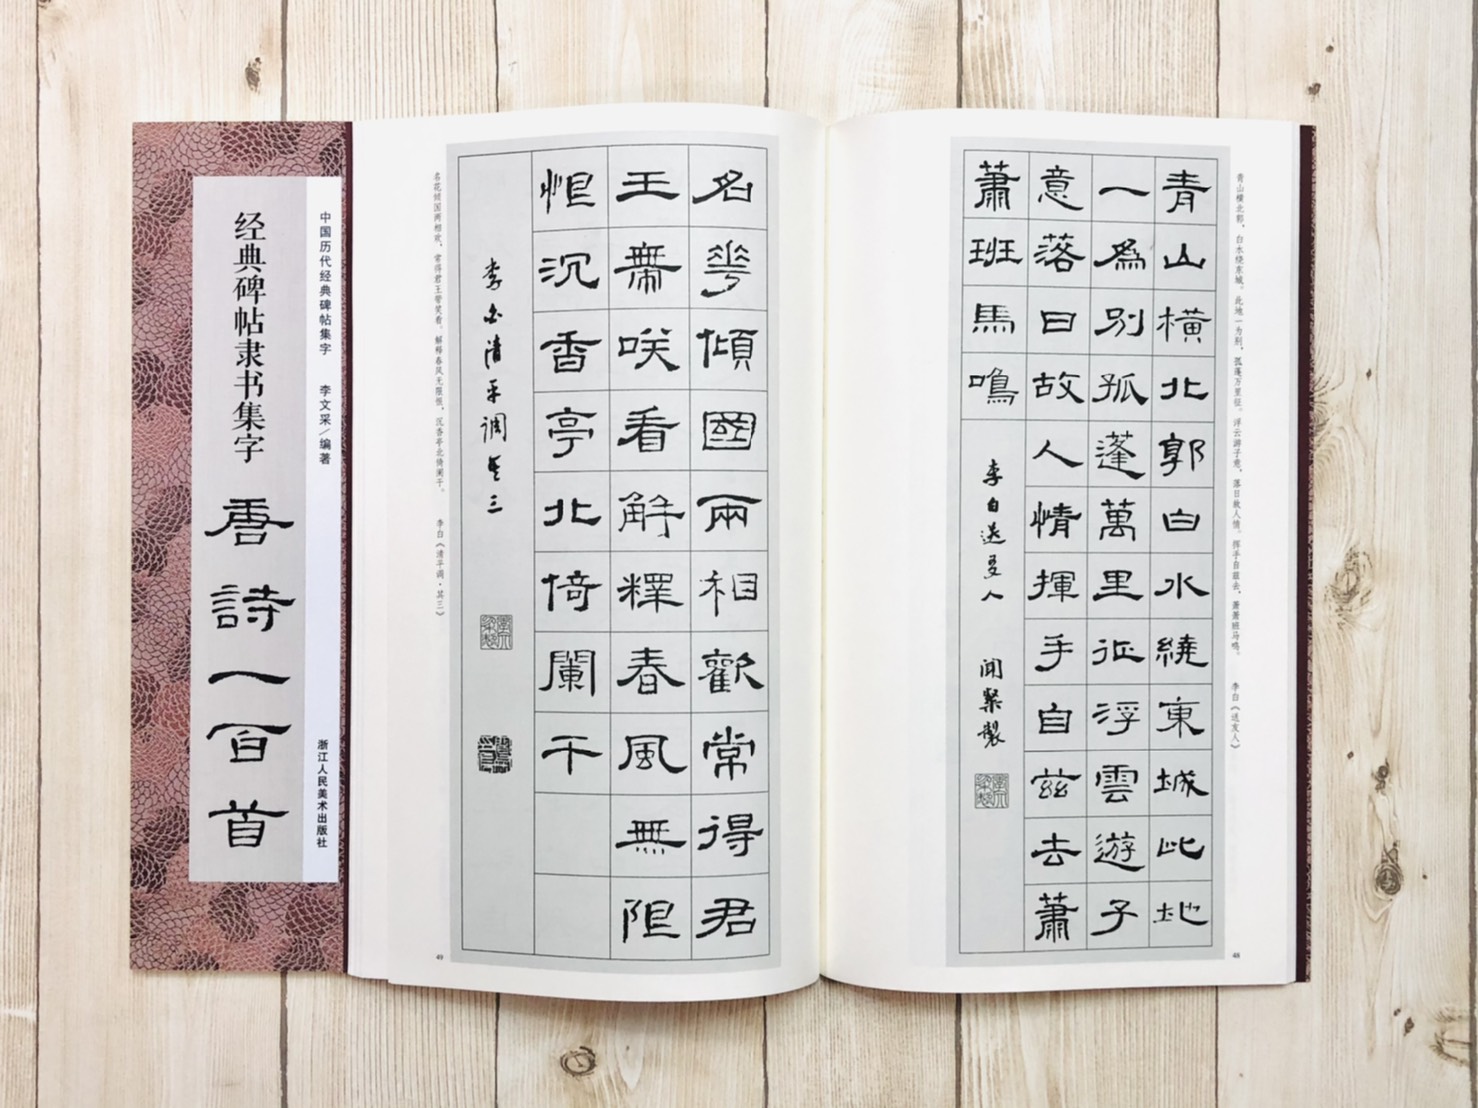 青山横北郭,白水绕东城。此地一为别,孤蓬万里征。浮云游子意,落日故人情。挥手自兹去,萧萧班马鸣。 李白《送友人》
青山橫北郭白水繞東城此地
一爲別孤蓬萬里征浮雲遊子
意落日故人情揮手自茲去蕭
蕭班馬鳴
李白送友人
48
名花傾國兩相歡常得君
王帶咲看解釋春風無限
恨沉香亭北倚闌干
李白清平調其三
名花倾国两相欢,常得君王带笑看。解释春风无限恨,沉香亭北倚阑干。 李白《清平调·其三》
49
中国历代经典碑帖集字 李文采/编著 浙江人民美术出版社
经典碑帖隶书集字 唐詩一百首